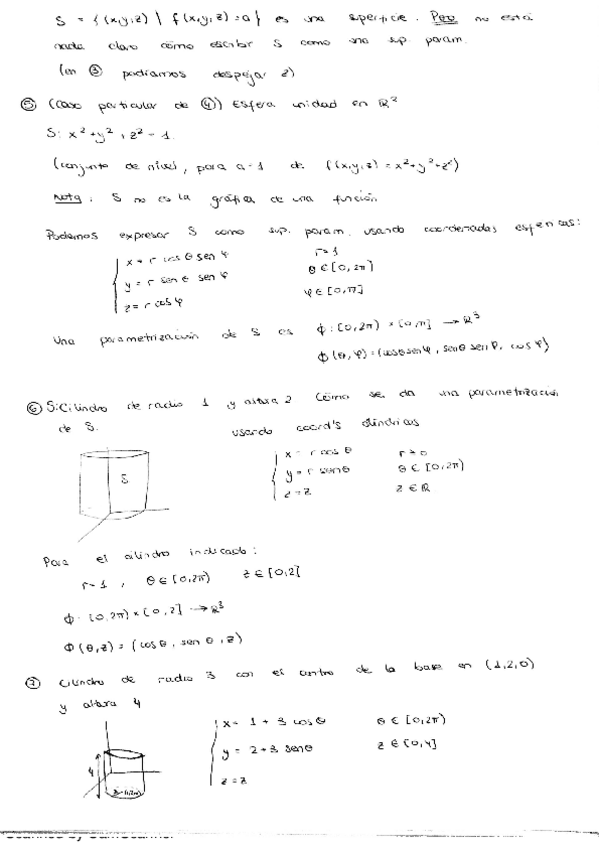 S = { (x,y,z) \ f(x,y,z) = a } es una superficie. Pero no está
nada claro cómo escribir S como una sup. param.
(en ③ podíamos despejar z)
⑤ (Caso particular de ④) Esfera unidad en R³
S: x² + y² + z² = 1.
(conjunto de nivel, para a=1 de f(x,y,z) = x²+y²+z²)
Nota: S no es la gráfica de una función
Podemos expresar S como sup. param. usando coordenadas esféricas:
x = r cos θ sen φ r=1
y = r sen θ sen φ θ ∈ [0, 2π]
z = r cos φ φ ∈ [0, π]
Una parametrización de S es Φ: [0, 2π) × [0, π] → R³
Φ(θ, φ) = (cosθ senφ, senθ senφ, cos φ)
⑥ S: Cilindro de radio 1 y altura 2 Cómo se da una parametrización
de S. usando coord's cilíndricas
x = r cos θ r > 0
y = r sen θ θ ∈ [0, 2π)
z = z z ∈ R
S
Para el cilindro indicado:
r = 1, θ ∈ [0, 2π) z ∈ [0, 2]
Φ: [0, 2π) × [0, 2] → R³
Φ(θ, z) = (cos θ, sen θ, z)
⑦ Cilindro de radio 3 con el centro de la base en (1,2,0)
y altura 4
x = 1 + 3 cos θ θ ∈ [0, 2π)
y = 2 + 3 sen θ z ∈ [0, 4]
z = z
4